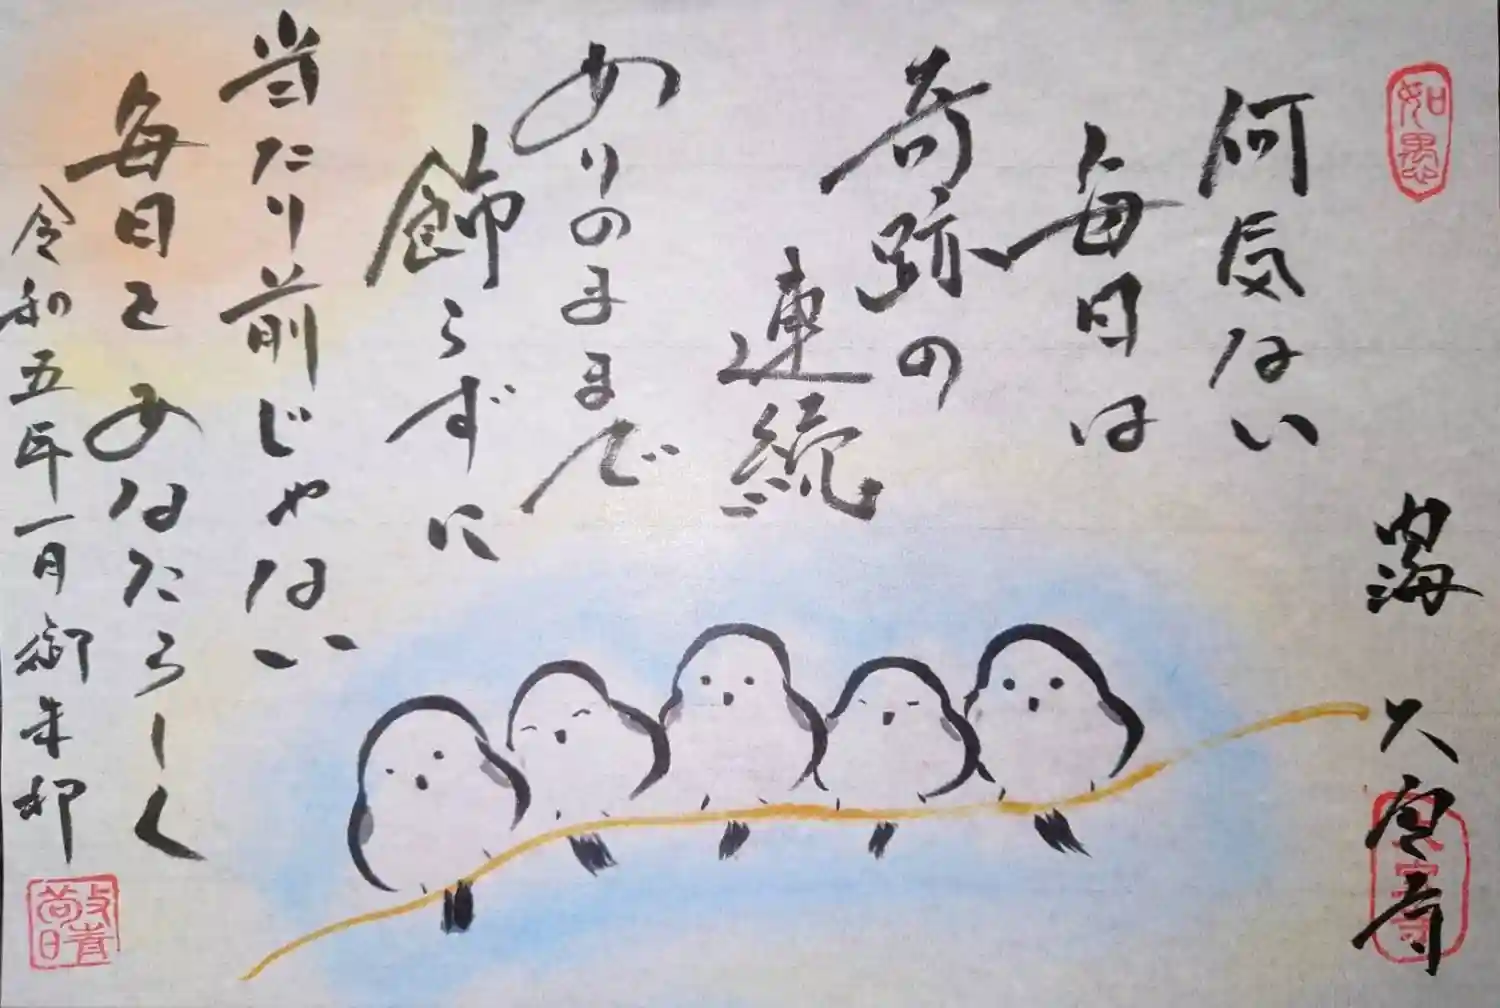 如愚
内海 大宝寺
何気ない
毎日は
奇跡の
連続
ありのままで
飾らずに
当たり前じゃない
毎日をあなたらしく
令和五年一月御朱印